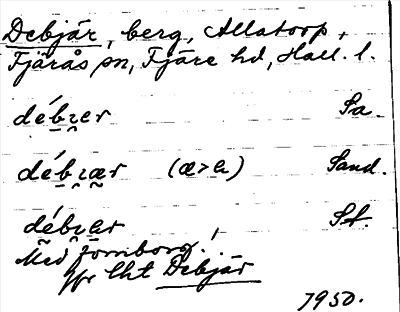 Debjär, berg, Allatorp,
Fjärås sn, Fjäre hd, Hall. l.
débrer Sa.
débrær (æ>a) Sand.
débrer St.
Med fornborg!
Jfr lht Debjär
1950.